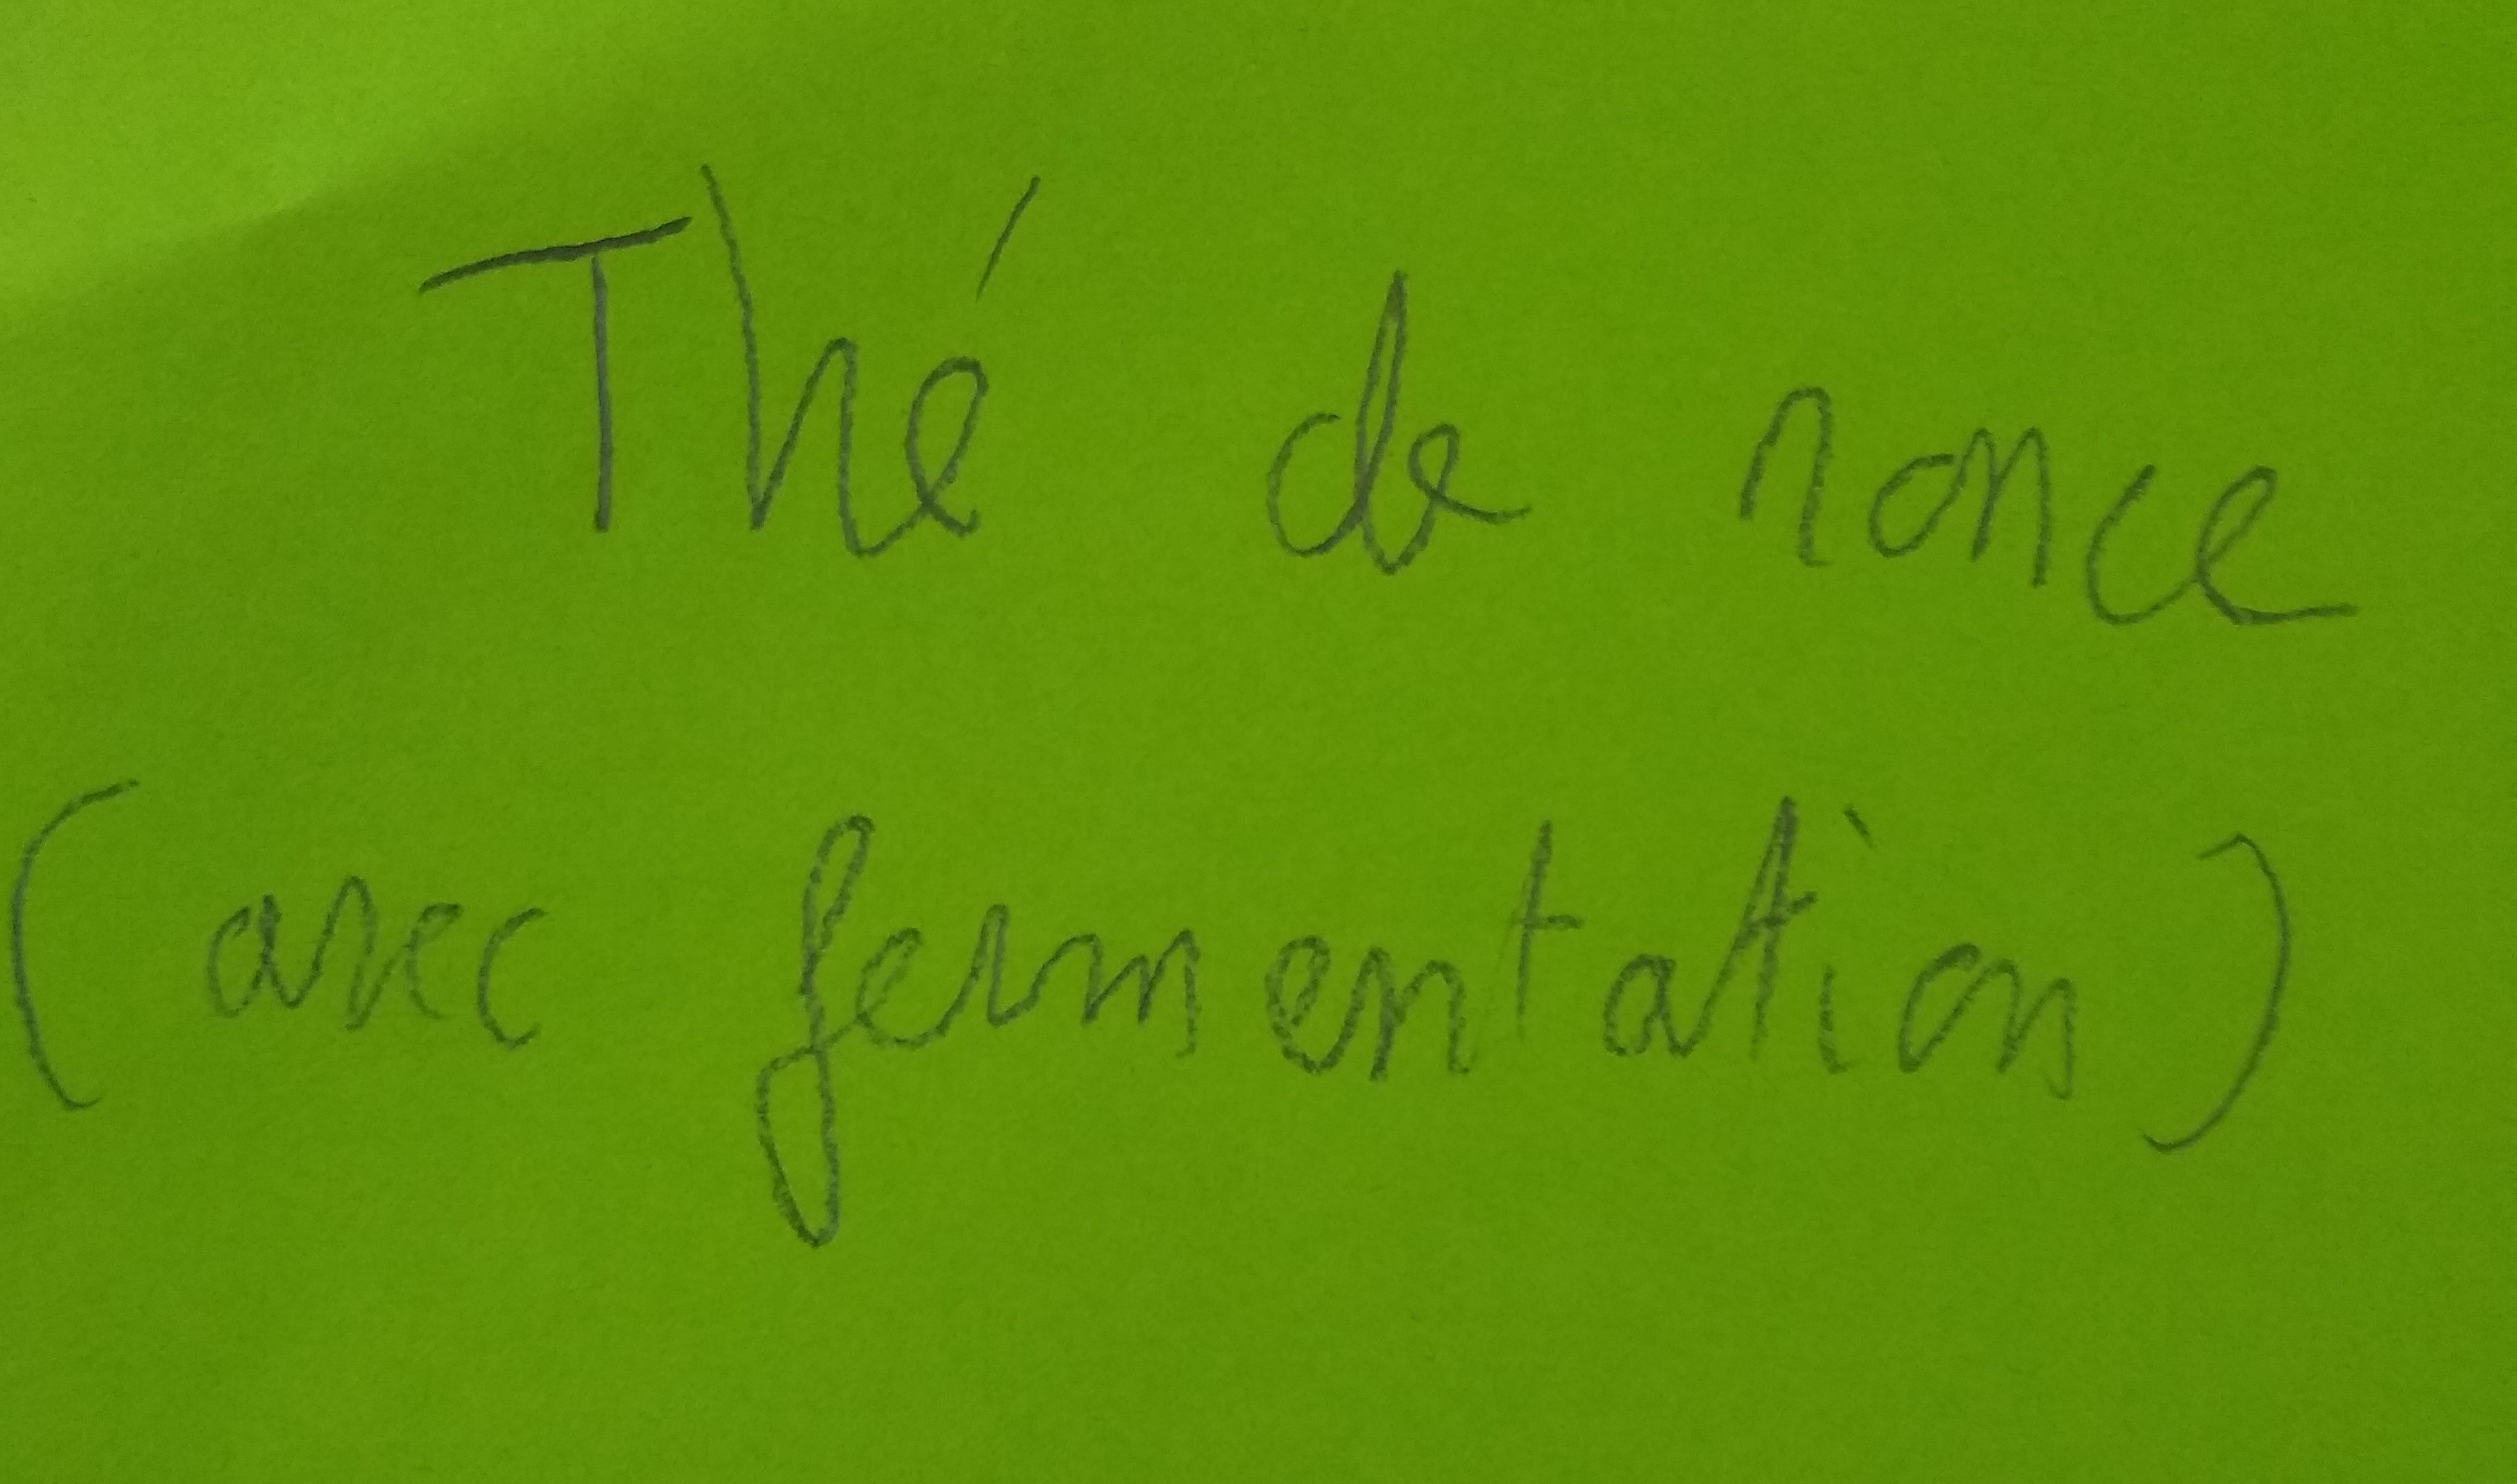 Thé de ronce
(avec fermentation)